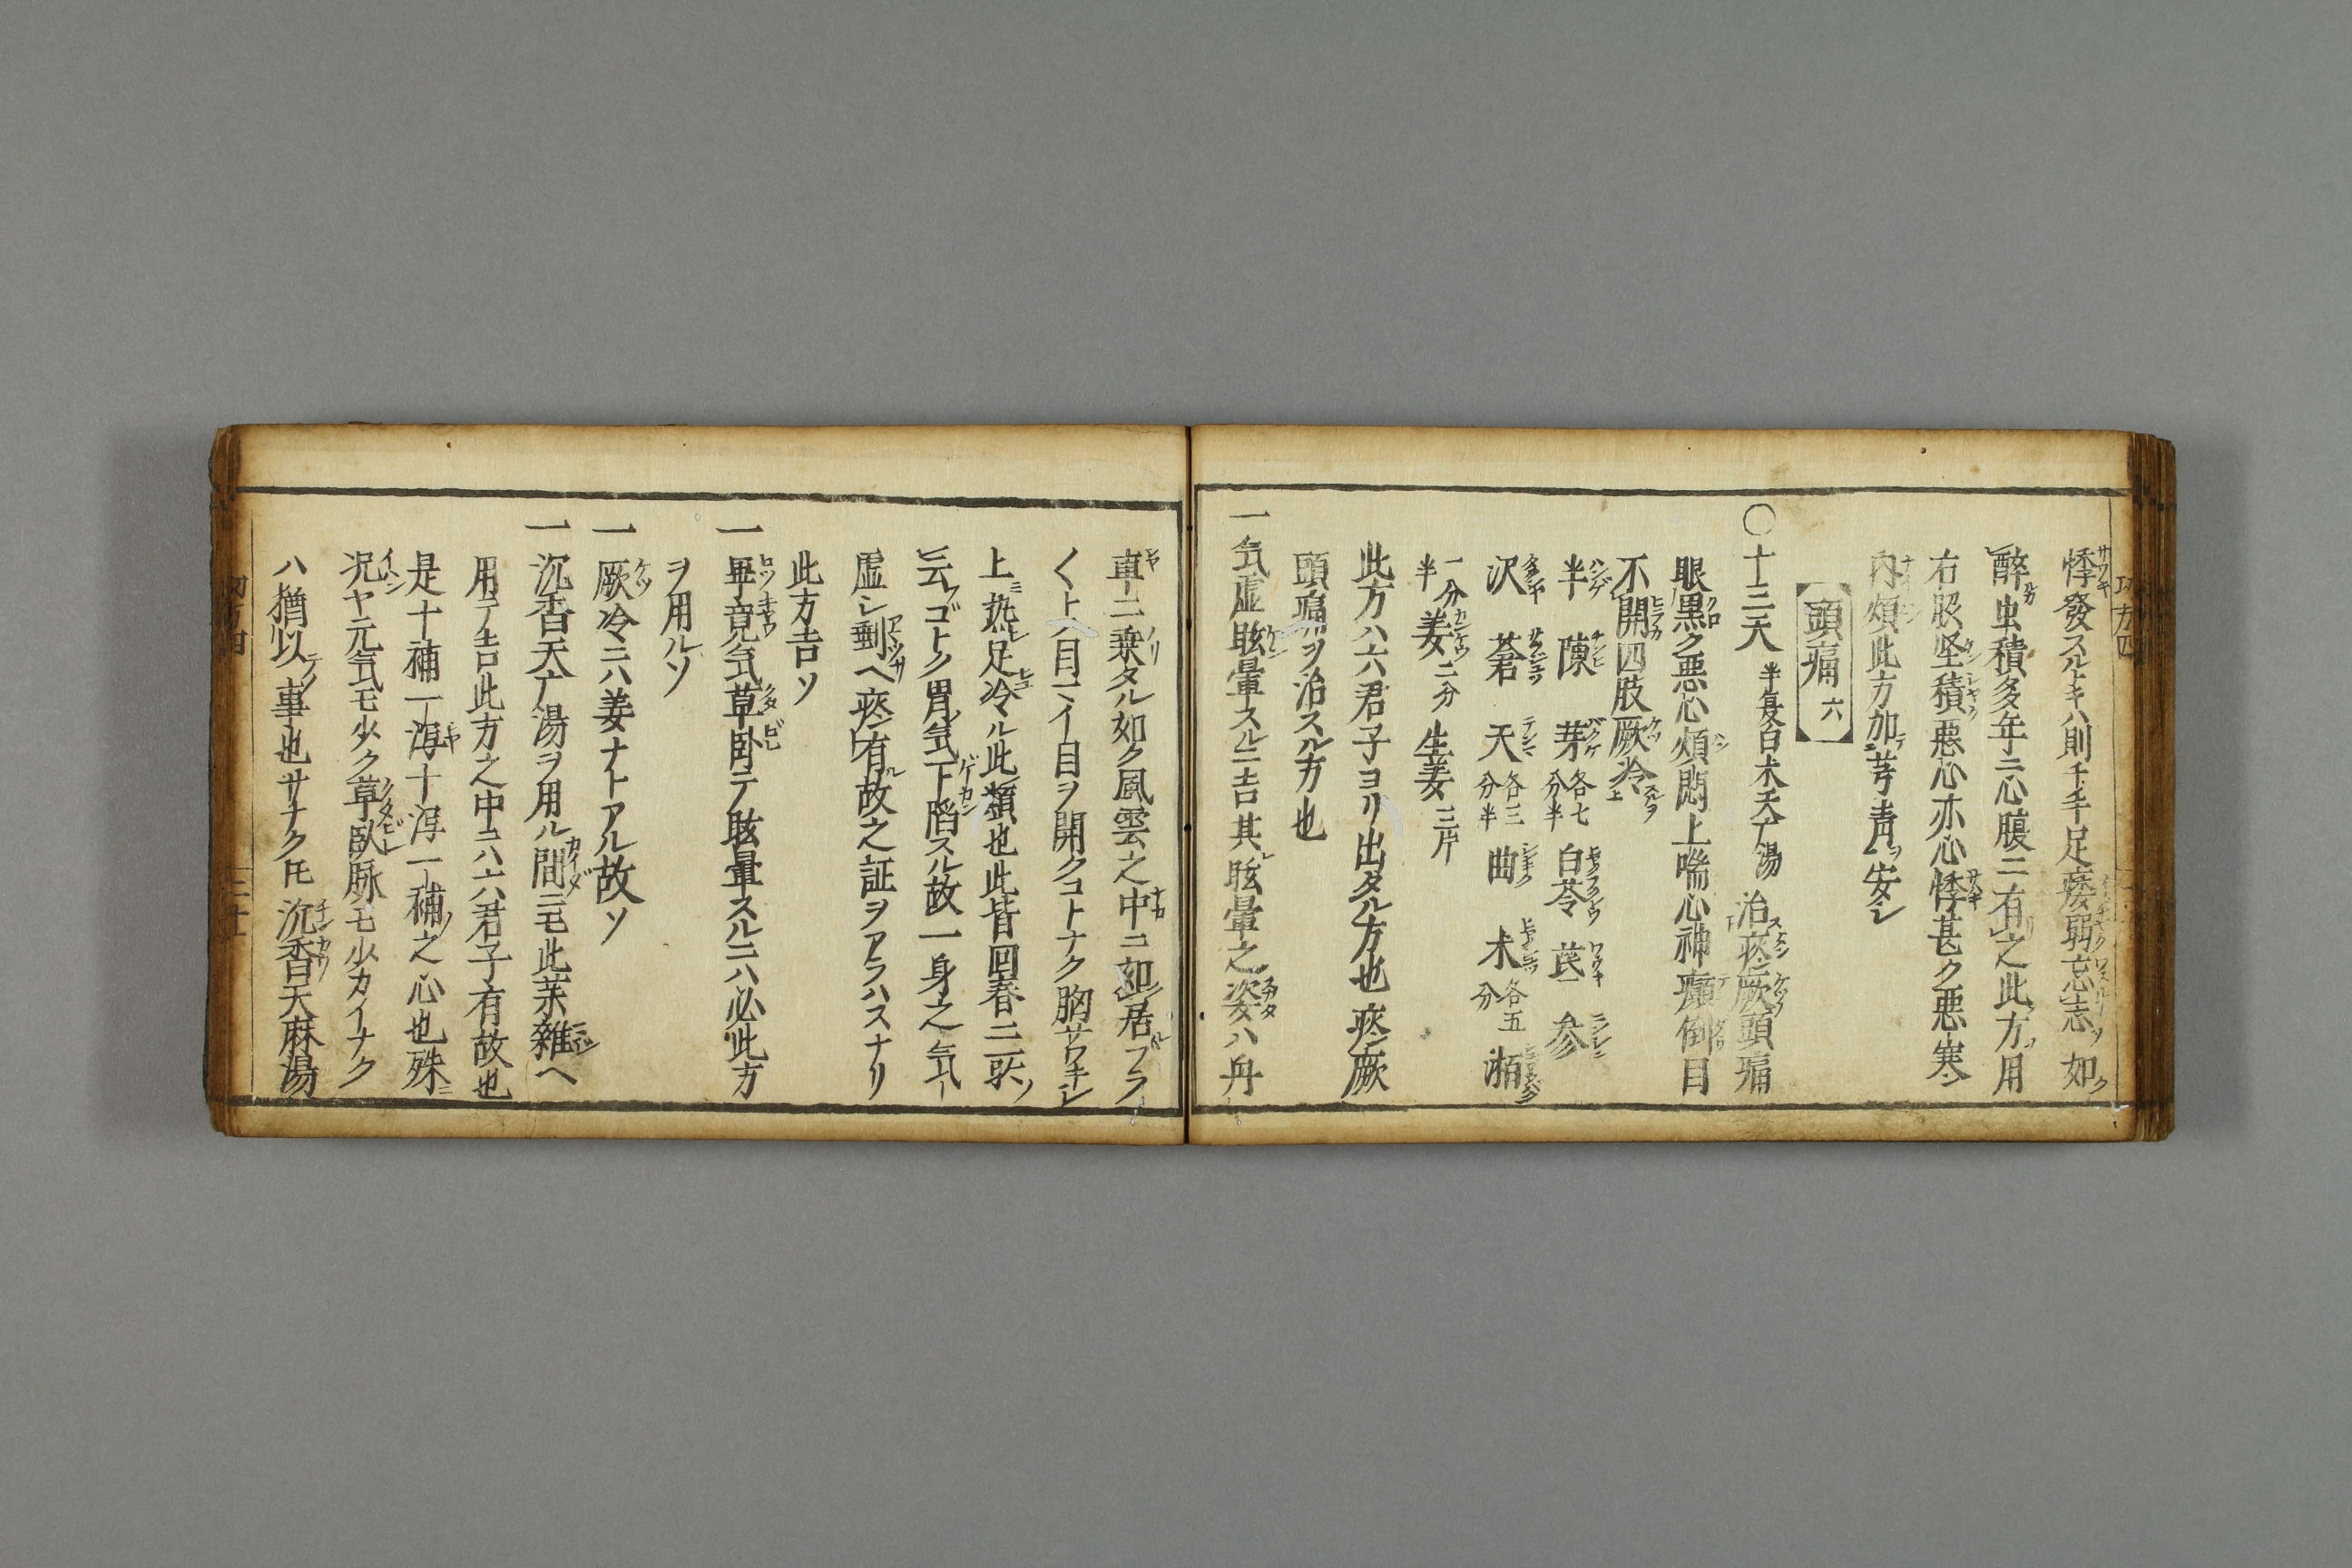 悸發スルキハ則チ手足痿弱忘志如ク
醉虫積多年ニ心腹ニ有之此方用
右服堅積悪心亦心悸甚ク悪寒
内煩此方加芎青安シ
頭痛 六
〇十三天 半夏白朮天广湯 治痰厥頭痛
眼黒ク悪心煩悶上喘心神顛倒目
不開四肢厥冷
半 陳 芽 各七分半 白苓 芪 参
沢 蒼 天 各三分半 曲 朮 各五分 栢
一分半 姜 二分 生姜 三片
此方ハ六君子ヨリ出タル方也痰厥
頭痛ヲ治スル方也
一気虚眩暈スルニ吉其眩暈之姿ハ舟
車ニ乗タル如ク風雲之中ニ如居フラ
く ト目マイ目ヲ開クコトナク胸サワキシ
上熱足冷ル此類也此皆回春ニ
云ゴトク胃気下陷スル故一身之気
虚シ剰ヘ痰有故之証ヲアラハスナリ
此方吉ソ
一畢竟気草臥テ眩暈スルニハ必此方
ヲ用ルソ
一厥冷ニハ姜ナトアル故ソ
一沉香天广湯ヲ用ル間ニモ此薬雜ヘ
用テ吉此方之中ニハ六君子有故也
是十補一瀉十瀉一補之心也殊
况ヤ元気モ少ク草臥脉モ少カイナク
ハ猶以事也サナク𪜈沉香天麻湯